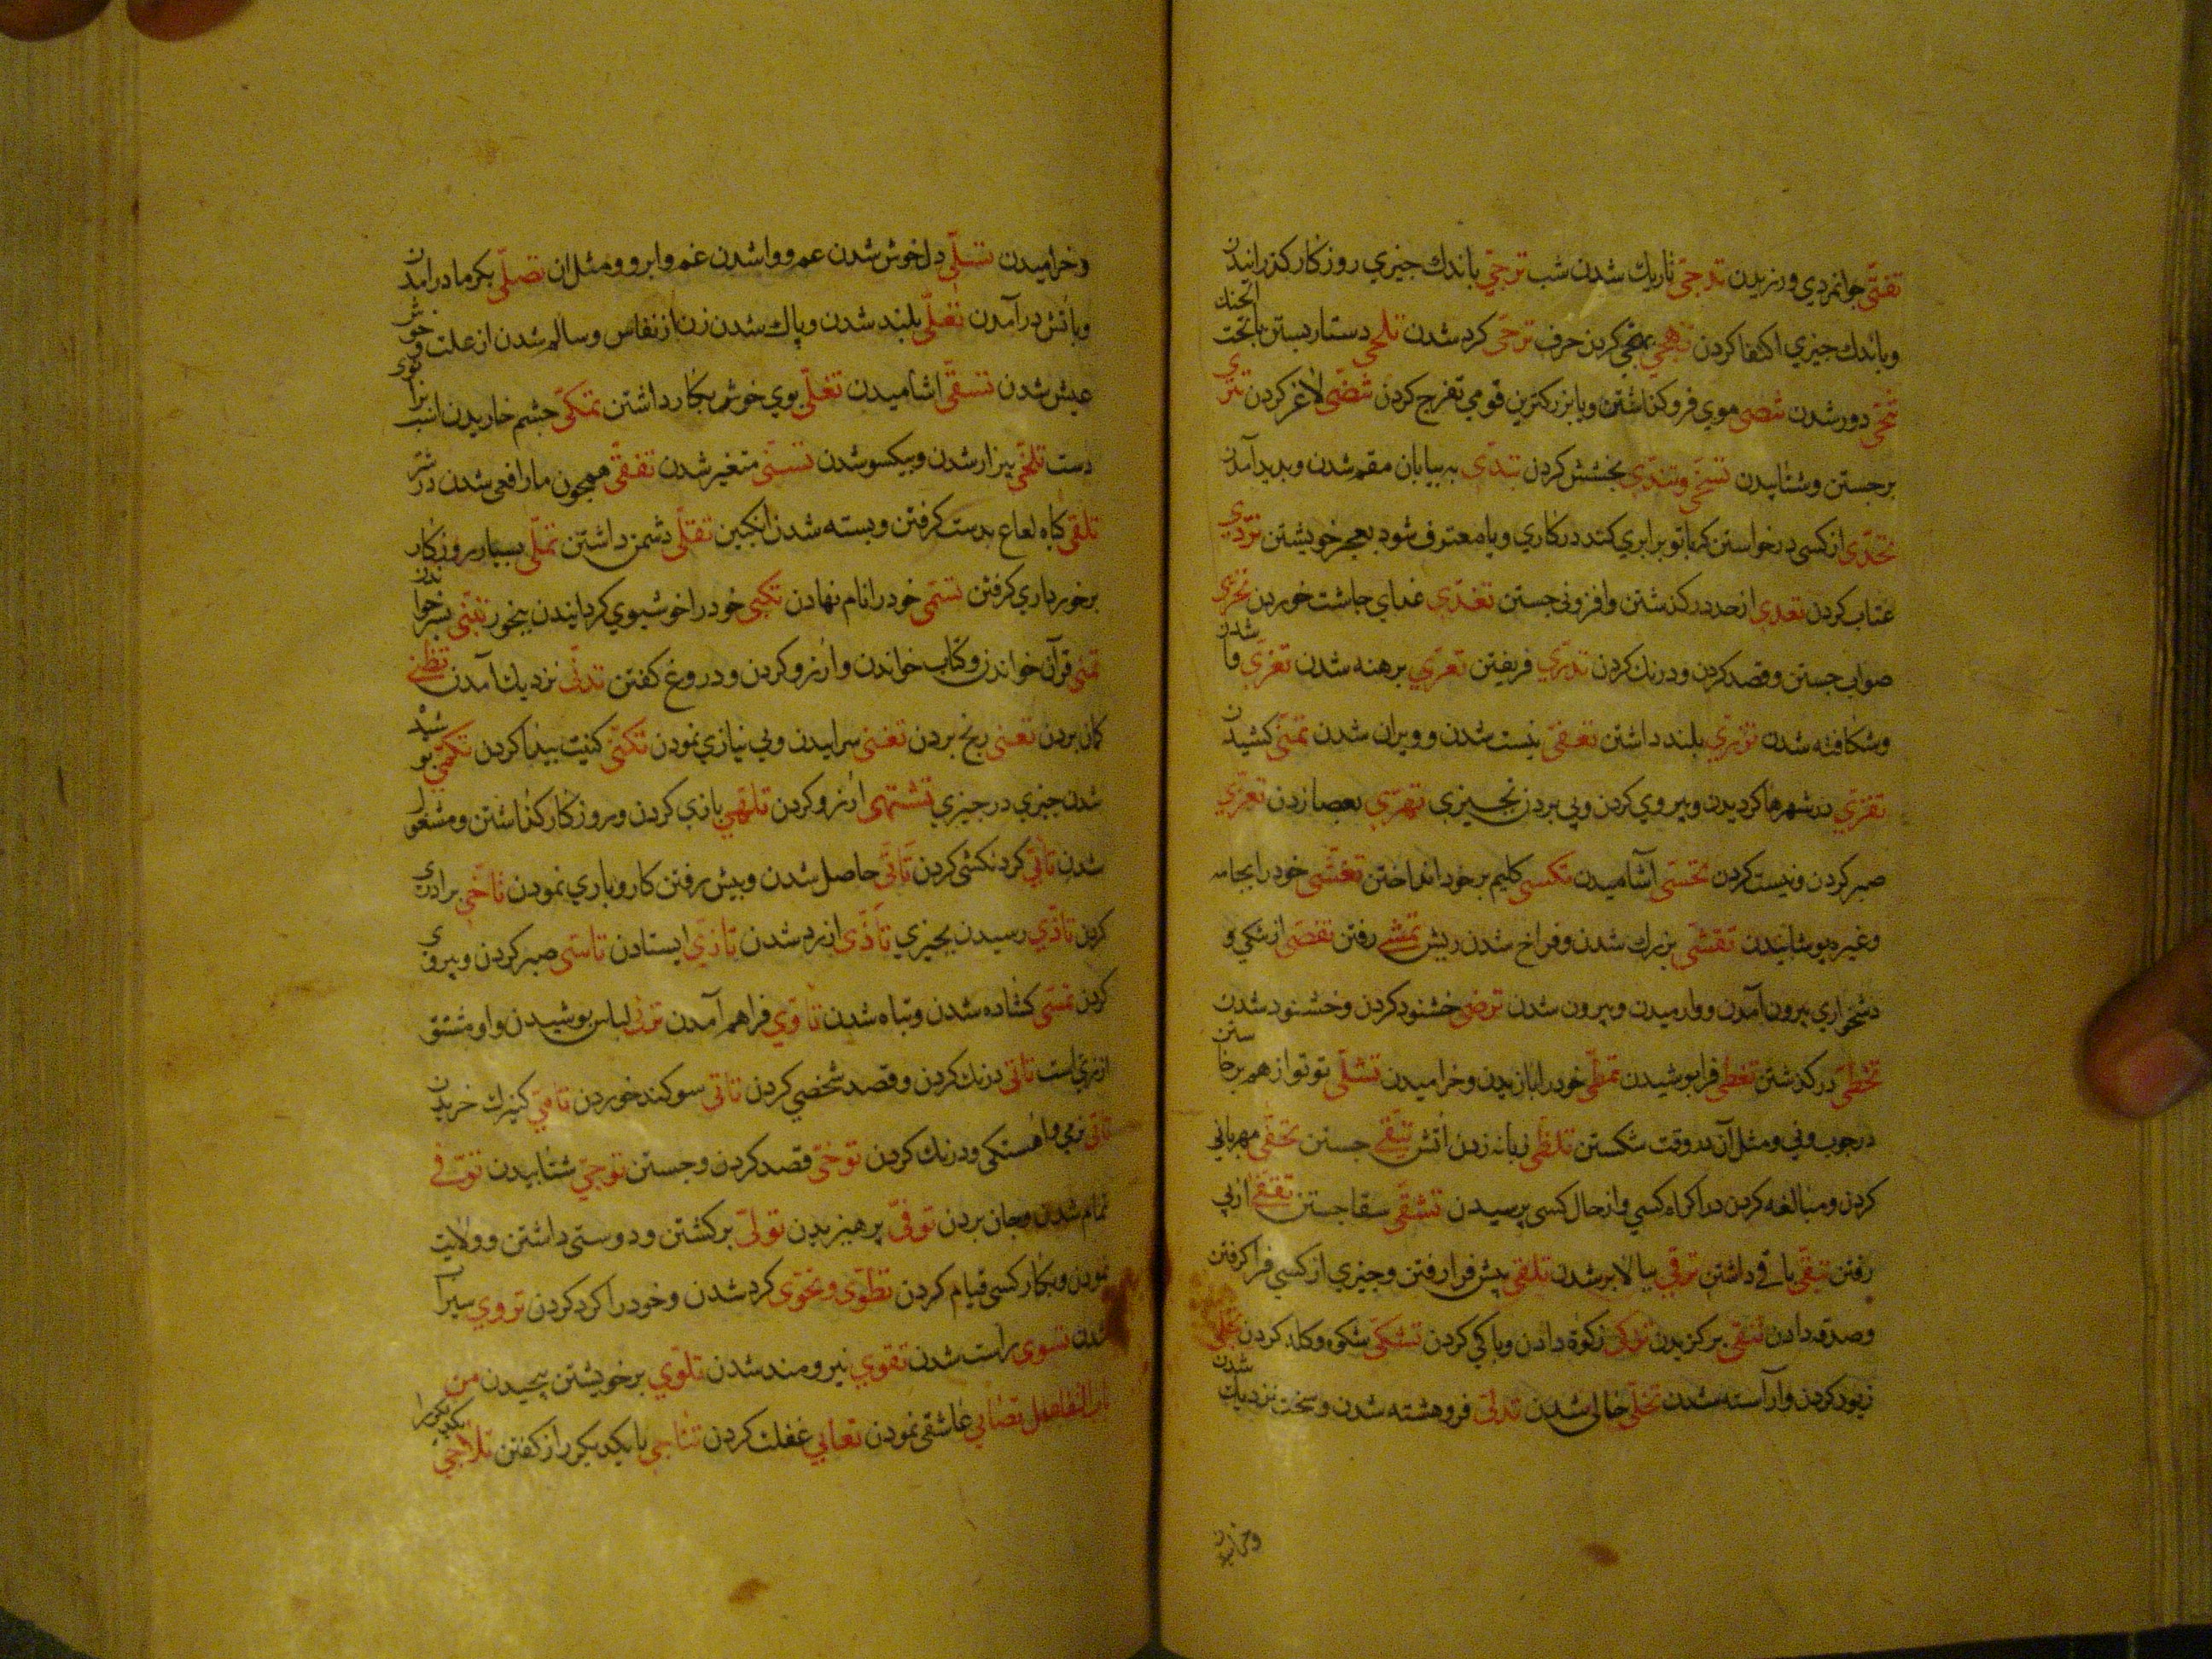 تفتّی جوانمردي ورزیدن تدجّی تاریك شدن شب ترجّي باندك جیزي روزکار کذرانیدن
وباندك جیزي اکتفا کردن تهجّي تهجّي کردن حرف ترحّی کرد شدن تلحّي دستار بستن باتحت
تنحّی دور شدن موي فروکذاشتن وبا بزرکترین قومي تفرج کردن لاغر کردن
برجستن وشتابیدن تسخّی وتندّی بخشش کردن تبدّی به بیابان مقیم شدن وبدید آمدن
تحدّی از کسی درخواستن که باتو برابري کند در کاري ویا معترف شود بعجز خویشتن تردّي
عتاب کردن تعدي از حد درکذشتن وافزونی جستن تغدّي غداي جاشت خوردن تحرّي
صواب جستن وقصد کردن ودرنك کردن تدرّي فریفتن تعرّي برهنه شدن تفرّي وا شدن
وشکافته شدن بلند داشتن نیست شدن وویران شدن کشیدن
تقرّي در شهرها کردیدن وپیروي کردن وپی بردن بجیزي تهرّي بعصا زدن تعزّي
صبر کردن ونیست کردن تحسّی آشامیدن تکسّي کلیم برخود انداختن تغشّی خودرا بجامه
وغیره پوشانیدن بزرك شدن وفراخ شدن ریش تمشّي رفتن تفصّی از تنکي و
دشخواري بیرون آمدن ووارمیدن وبیرون شدن ترضّي خشنود کردن وخشنود شدن
تخطّي درکذشتن تغطّي فرا پوشیدن تمطّي خودرا یازیدن وخرامیدن توتو از هم برخاستن
درجوب ونی ومثل آن در وقت شکستن تلظّي زبانه زدن آتش جستن تحفّی مهربانی
کردن ومبالغه کردن در اکرام کسي واز حال کسی پرسیدن سقا جستن تقفّي ازپی
رفتن تبقّي باقي داشتن ترقّي ببالا بر شدن تلقّي پیش فرا رفتن وجیزي از کسي فرا کرفتن
وصدقه دادن تنقّي برکزیدن تزکّی زکوة دادن وپاکي کردن تشکّي شکوه وکله کردن تحلّي
زیور کردن وآراسته شدن تخلّي خالی شدن تدلّي فروهشته شدن وسخت نزدیك شدن
وخرامیدن
وخرامیدن تسلّي دل خوش شدن غم ووا شدن غم وابر وومثل ان تصلّي بکرما درآمدن
وباتش درآمدن تعلّي بلند شدن وپاك شدن زن از نفاس وسالم شدن از علت وخوش
عیش شدن تسقّی اشامیدن تغلّي بوي خوش بکار داشتن جشم خاریدن
دست بیزار شدن وبیکسو شدن تسنّی متغیر شدن همجون مار افعی شدن در
تلقّی کیاه لعاع بدست کرفتن وبسته شدن انکبین تقلّی دشمن داشتن تملّی بسیار بروزکار
برخورداري کرفتن تسمّی خودرا نام نهادن تکبّي خودرا خوشبوي کردانیدن ببخور تبنّي بسر خواندن
تمنّي قرآن خواندن وکتاب خواندن وارزو کردن ودروغ کفتن تدنّي نزدیك آمدن تظنّي
کمان بردن تعنّی رنج بردن تغنّی سراییدن وبی نیازي نمودن تکنّی کنیت پیدا کردن تکمّي پوشیده
شدن جیزي در جیزي تشتهی ارزو کردن تلهّي بازي کردن وروزکار کذاشتن ومشغول
شدن تأبّي کردنکشی کردن تأتّی حاصل شدن وپیش رفتن کار ویاري نمودن تأخّي برادري
کردن تأدّي رسیدن بجیزي تأذّی ازرده شدن تأرّي ایستادن تأسّی صبر کردن وپیروي
کردن کشاده شدن وتباه شدن تأوّي فراهم آمدن لباس پوشیدن واو مشتق
از زي است تأنّي درنك کردن وقصد شخصي کردن سوکند خوردن تأمّي کنیزك خریدن
تأنّی نرمي وآهستکی ودرنك کردن توخّي قصد کردن وجستن توحّي شتابیدن توفّي
تمام شدن وجان بردن توقّي پرهیزیدن تولّي برکشتن ودوستی داشتن وولایت
نمودن وبکار کسی قیام کردن تطوّی وتحوّی کرد شدن وخودرا کرد کردن تروّي سیرآب
شدن تسوّی راست شدن تقوّي نیرومند شدن تلوّي برخویشتن پیجیدن من
باب التفاعل تصابي عاشقی نمودن تغابي غفلت کردن تناجي با یکدیکر راز کفتن تلاحي یکدیکررا